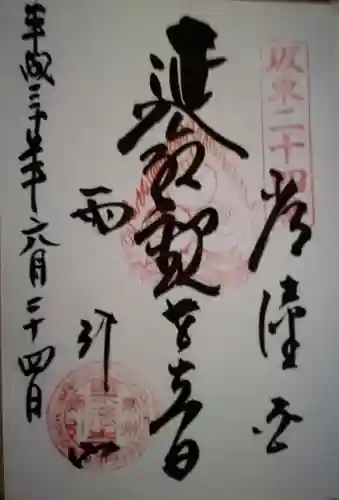 坂東二十四
常陸国
延命観世音
雨引山
平成三十年六月二十四日